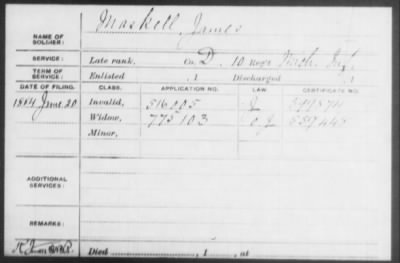 NAME OF SOLDIER: Maskell, James
SERVICE: Late rank, Co. D. 10 Reg't Mich. Inf.
TERM OF SERVICE: Enlisted , 1 Discharged , 1
DATE OF FILING. CLASS. APPLICATION NO. LAW. CERTIFICATE NO.
1884 June 20 Invalid, 516005
Widow, 775103
Minor,
ADDITIONAL SERVICES:
REMARKS:
Died , 1 , at